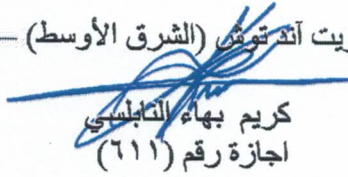 ريت آند توش (الشرق الأوسط) –
كريم بهاء النابلسي
اجازة رقم (٦١١)